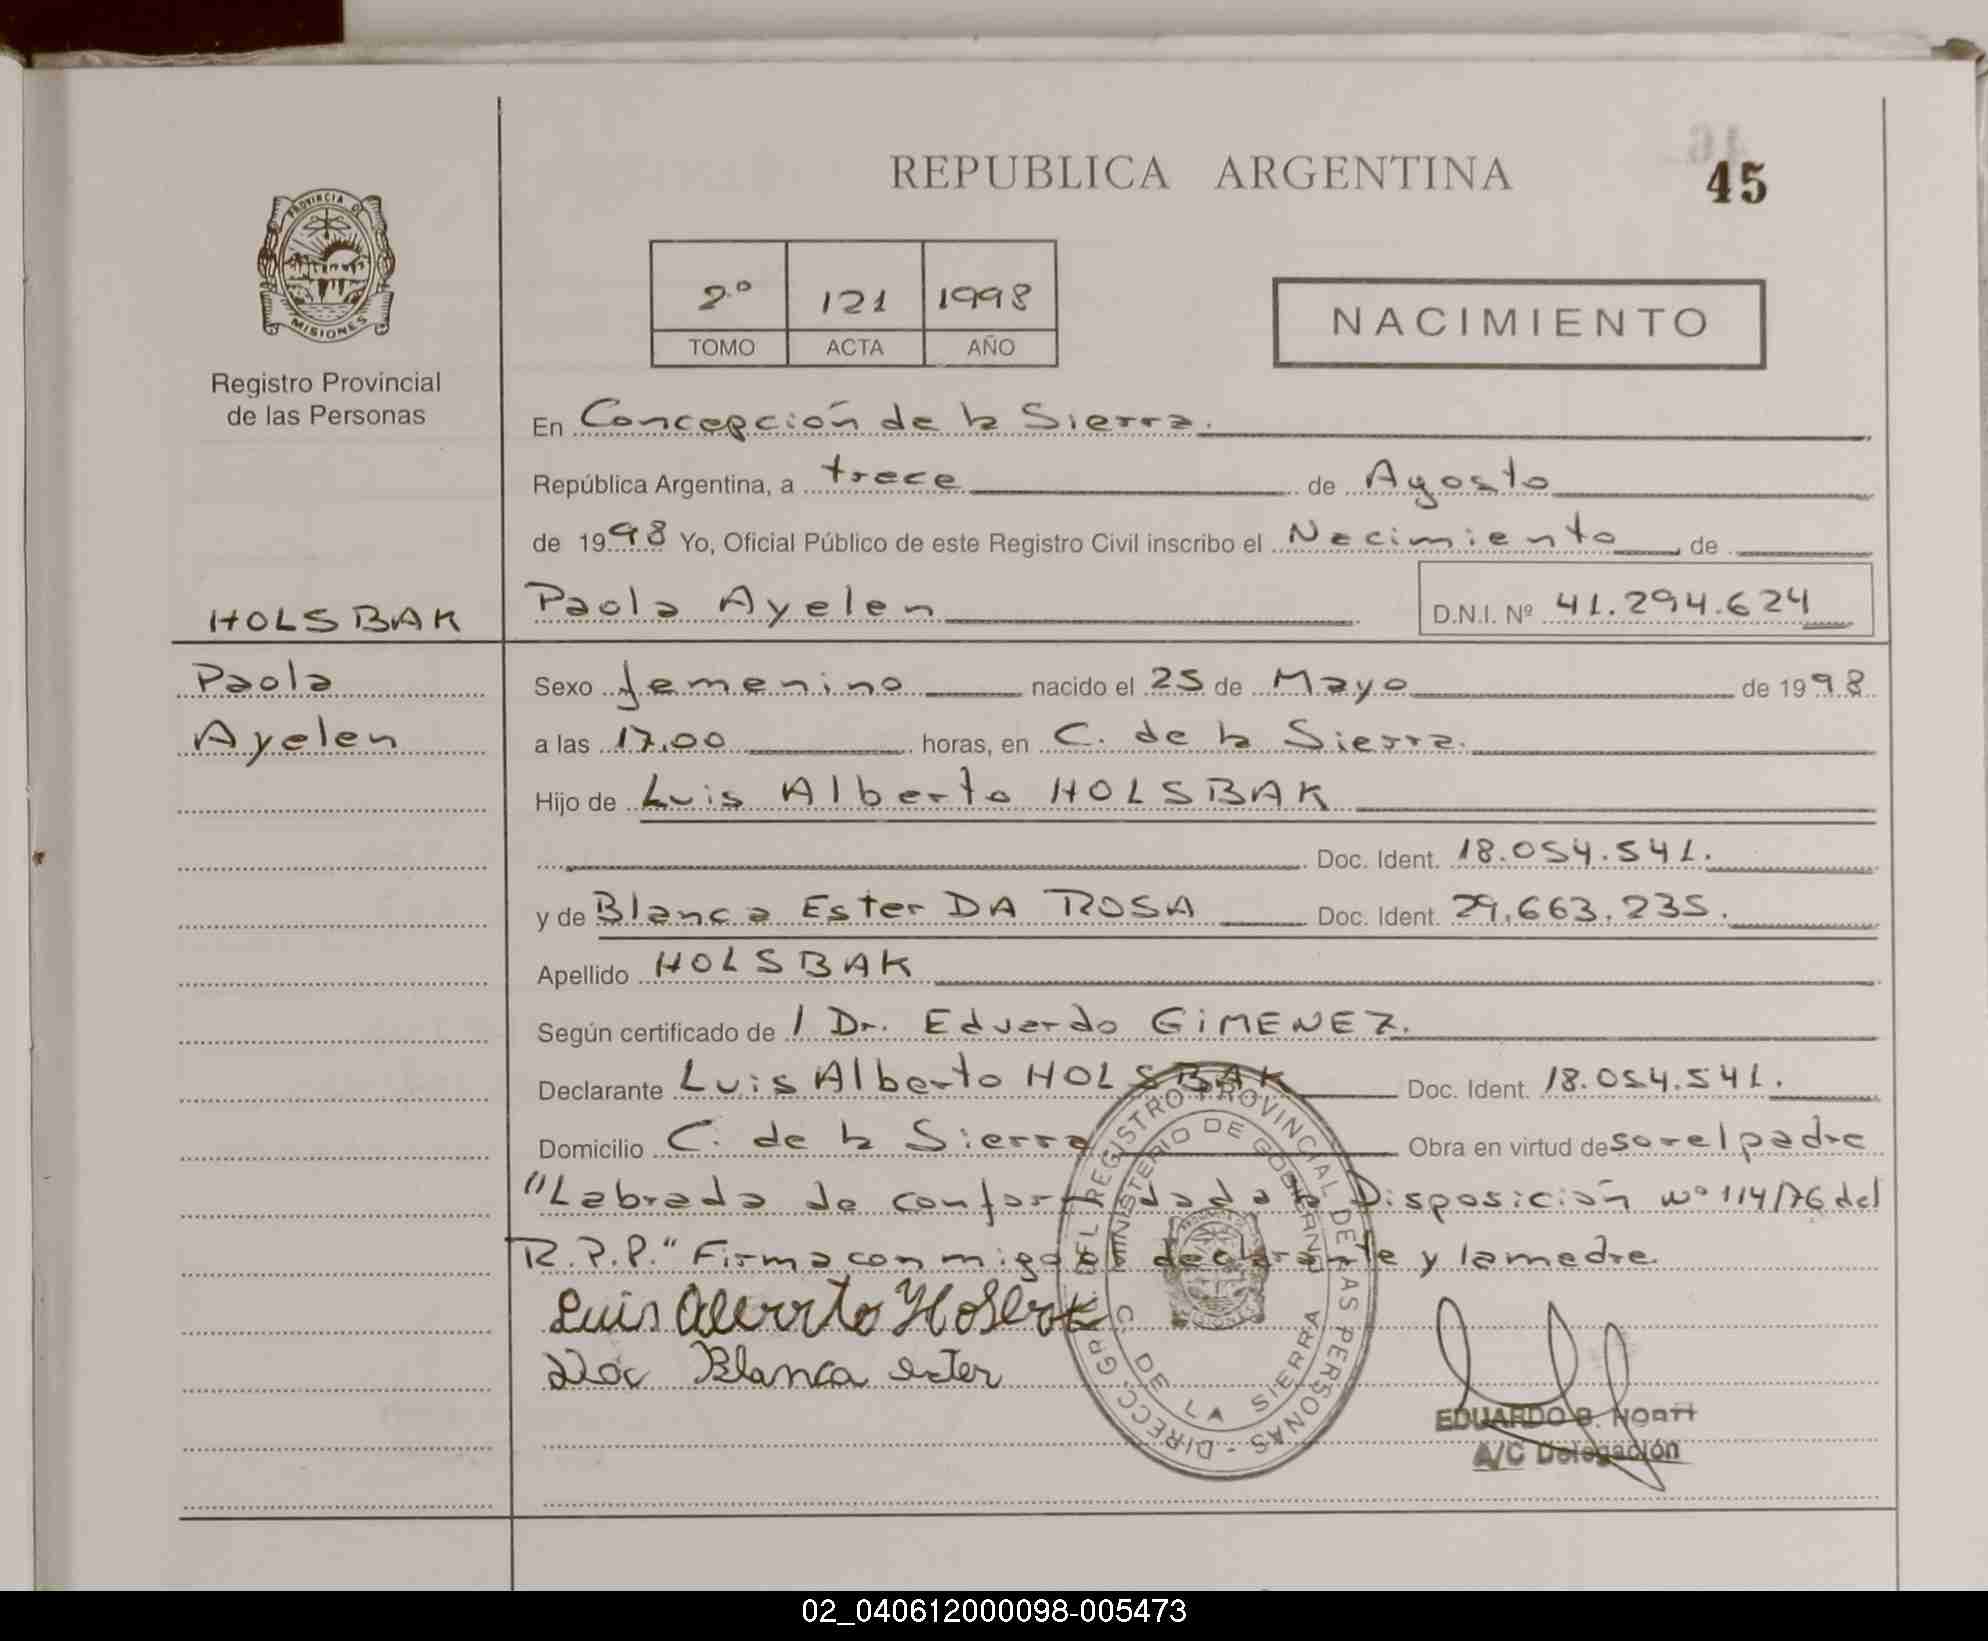 46
45
REPUBLICA ARGENTINA
PROVINCIA DE
MISIONES
Registro Provincial
de las Personas
2º 121 1998
TOMO ACTA AÑO
NACIMIENTO
En Concepción de la Sierra.
República Argentina, a trece de Agosto
de 1998 Yo, Oficial Público de este Registro Civil inscribo el Nacimiento de
HOLSBAK Paola Ayelen D.N.I. Nº 41.294.624
Paola Sexo femenino nacido el 25 de Mayo de 1998
Ayelen a las 17,00 horas, en C. de la Sierra.
Hijo de Luis Alberto HOLSBAK
Doc. Ident. 18.054.541.
y de Blanca Ester DA ROSA Doc. Ident. 29.663.235.
Apellido HOLSBAK
Según certificado de / Dr. Eduardo GIMENEZ.
Declarante Luis Alberto HOLSBAK Doc. Ident. 18.054.541.
Domicilio C. de la Sierra Obra en virtud de ser el padre
"Labrada de conformidad a la Disposición Nº 114/76 del
R.P.P." Firma conmigo el declarante y la madre.
Luis Alberto Holsbak
Blanca ester
DIRECC. GRAL. DEL REGISTRO PROVINCIAL DE LAS PERSONAS -
MINISTERIO DE GOBIERNO
C. DE LA SIERRA
MISIONES
EDUARDO B.
A/C Delegación
02_040612000098-005473